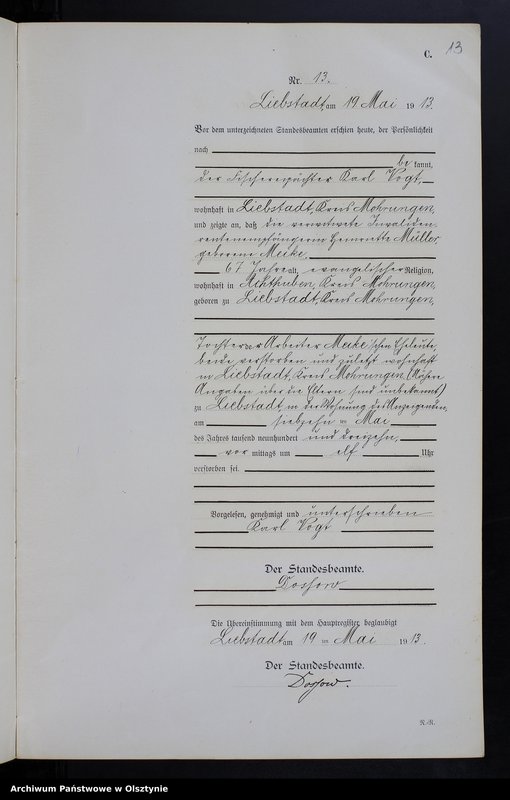 C. 13
Nr. 13.
Liebstadt, am 19. Mai 1913.
Vor dem unterzeichneten Standesbeamten erschien heute, der Persönlichkeit
nach
bekannt,
der Fischereipächter Karl Vogt,
wohnhaft in Liebstadt, Kreis Mohrungen,
und zeigte an, daß die verwitwete Invaliden-
rentenempfängerin Henriette Müller,
geborene Meike,
67 Jahre alt, evangelischer Religion,
wohnhaft in Achthuben, Kreis Mohrungen,
geboren zu Liebstadt, Kreis Mohrungen,
Tochter der Arbeiter Meike'schen Eheleute,
beide verstorben und zuletzt wohnhaft
in Liebstadt, Kreis Mohrungen (Nähere
Angaben über die Eltern sind unbekannt)
zu Liebstadt, in der Wohnung des Anzeigenden,
am siebzehn ten Mai
des Jahres tausend neunhundert und dreizehn,
vor mittags um elf Uhr
verstorben sei.
Vorgelesen, genehmigt und unterschrieben
Karl Vogt
Der Standesbeamte.
Dossow
Die Übereinstimmung mit dem Hauptregister beglaubigt
Liebstadt, am 19 ten Mai 1913.
Der Standesbeamte.
Dossow.
R.-R.
Archiwum Państwowe w Olsztynie